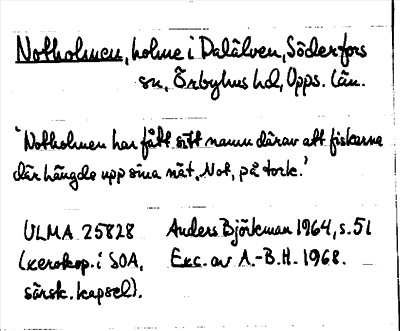 Notholmen, holme i Dalälven, Söderfors
sn, Örbyhus hd, Upps. län.
'Notholmen har fått sitt namn därav att fiskerna
där hängde upp sina nät, Not, på tork.'
ULMA 25828 Anders Björkman 1964, s. 51
(xerokop. i SOA, Exc. av A.-B.H. 1968.
särsk. kapsel).